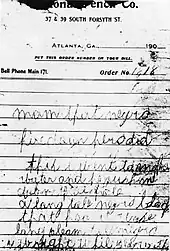 Co.
37 & 39 SOUTH FORSYTH ST.
ATLANTA, GA., 190
PUT THIS ORDER NUMBER ON YOUR BILL.
Bell Phone Main 171. Order No.
mam that negro
down here did
this i went to make
water and he push me
down that hole
a long tall negro black
that hoo it wase
long sleam tall negro
i wright while play with